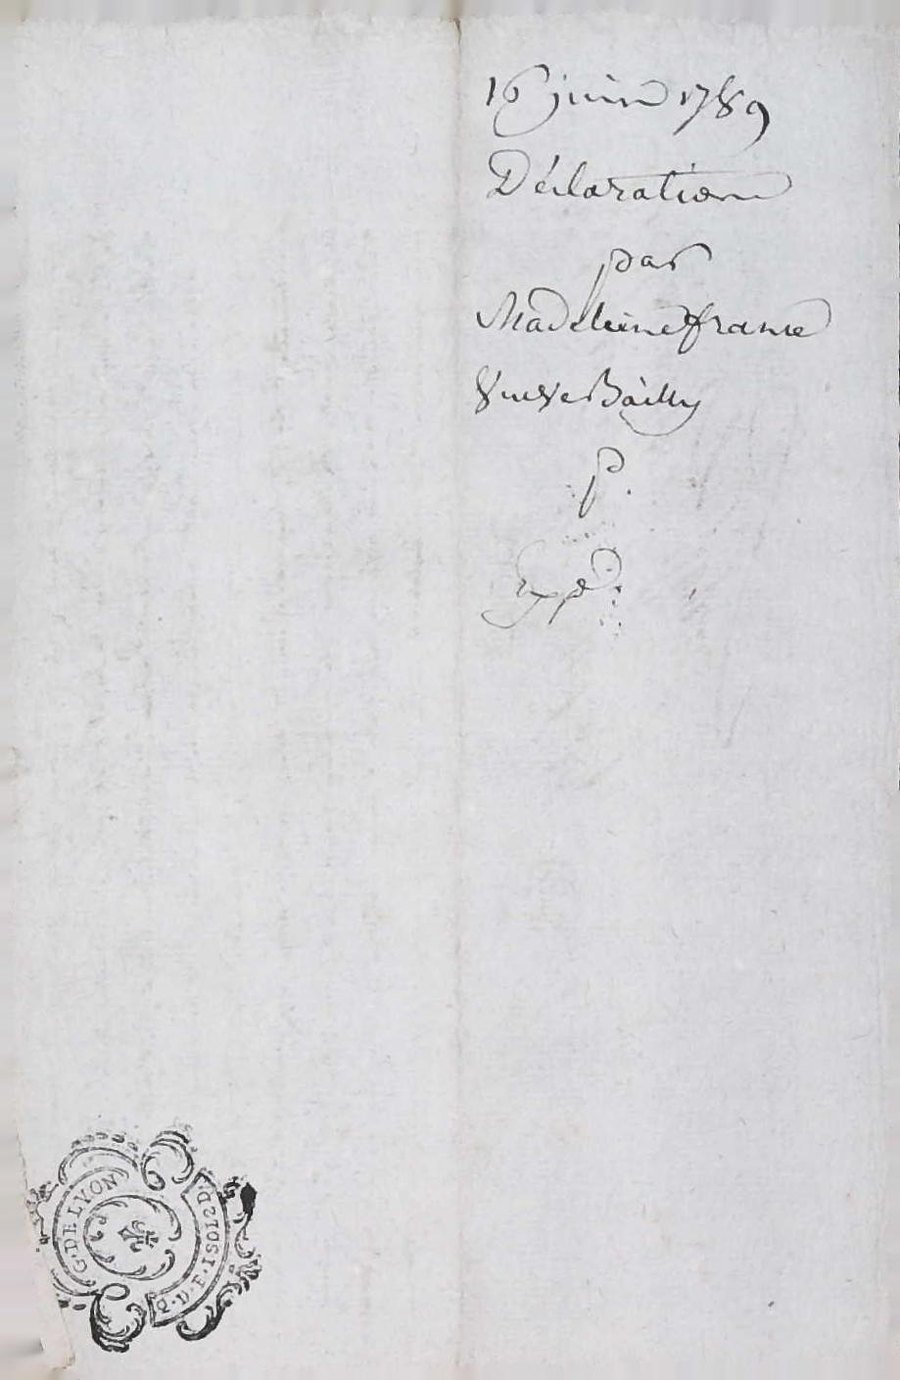 16 juin 1789
Déclaration
par
Madeleine france
Veuve Bailly
p.
Exp.é
G. DE LYON
D SIOSI